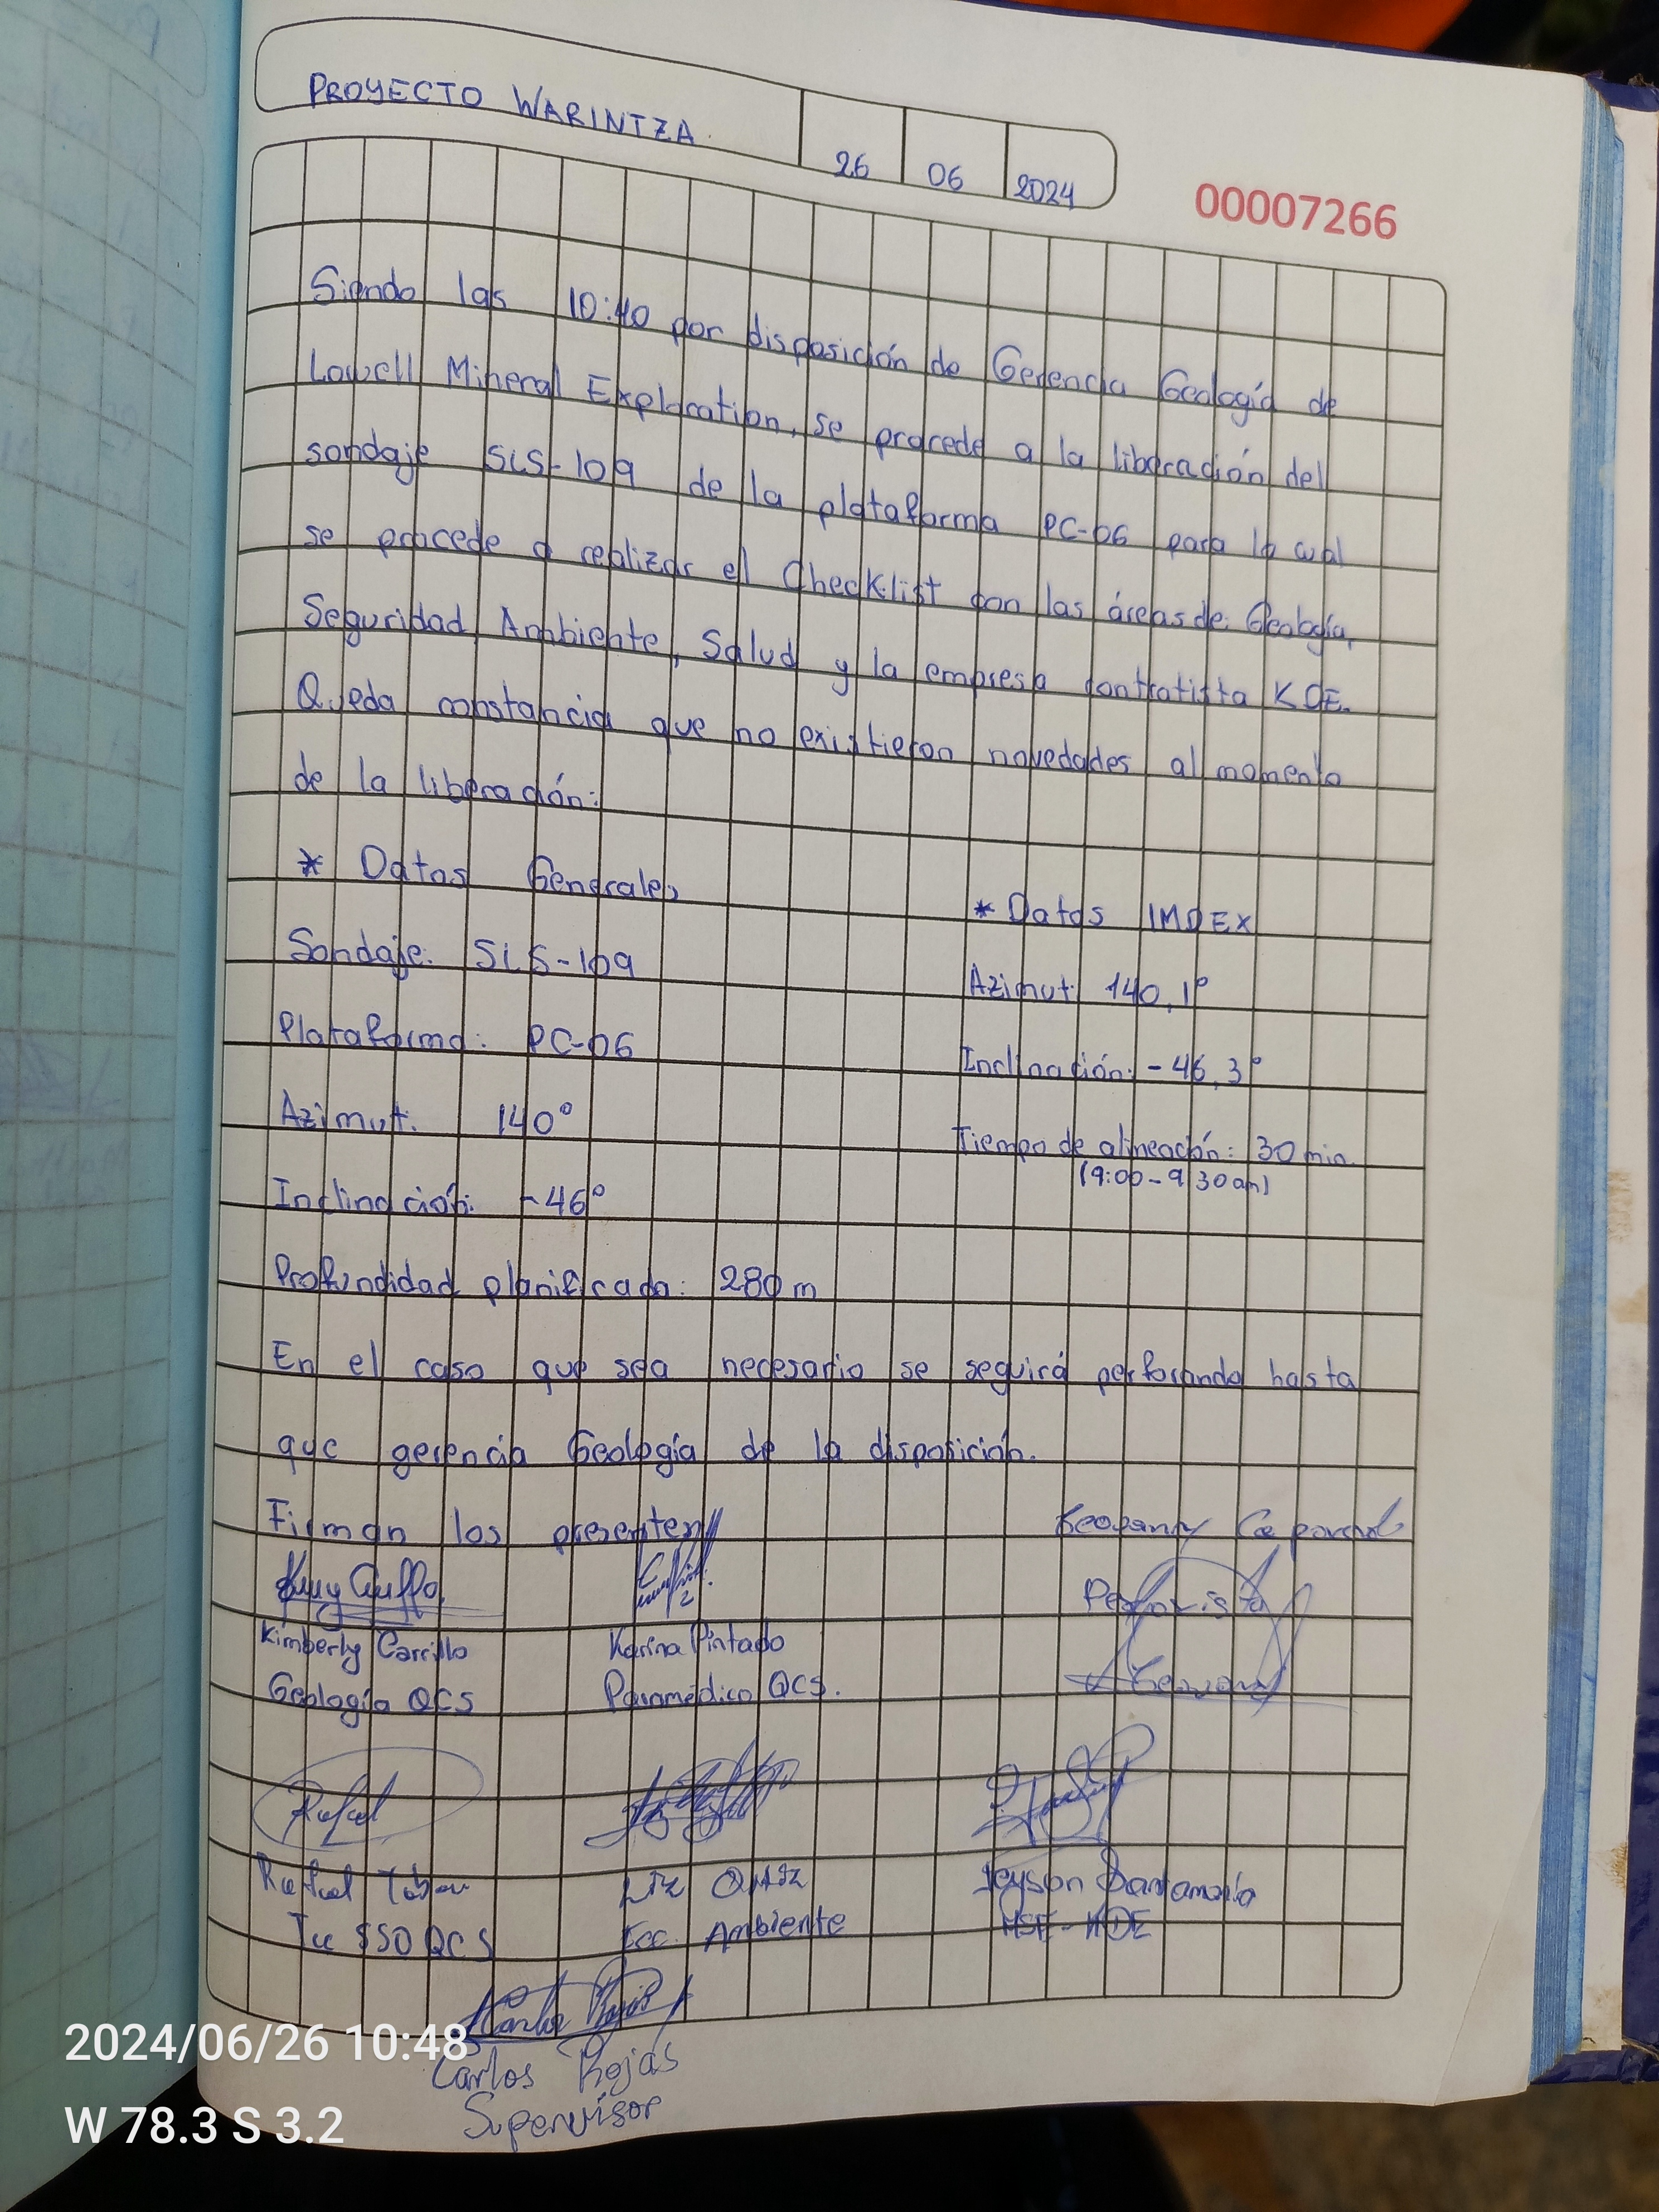 PROYECTO WARINTZA.
26 06 2024
00007266
Siendo las 10:40 por disposición de Gerencia Geología de
Lowell Mineral Exploration, se procede a la liberación del
sondaje SLS-109 de la plataforma PC-06 para lo cual
se procede a realizar el Checklist con las áreas de: Geología,
Seguridad, Ambiente, Salud y la empresa contratista KDE.
Queda constancia que no existieron novedades al momento
de la liberación:
* Datos Generales
* Datos IMDEX
Sondaje: SLS-109
Azimut: 140,1°
Plataforma: PC-06
Inclinación: -46,3°
Azimut: 140°
Tiempo de alineación: 30 min.
(9:00-9:30am)
Inclinación: -46°
Profundidad planificada: 280 m
En el caso que sea necesario se seguirá perforando hasta
que gerencia Geología de la disposición.
Firman los presentes//
Perforista
Kimberly Carrillo
Karina Pintado
Geología QCS
Paramédico QCS.
Rafael
Rafael
Jeyson Santamaría
SSO QCS
Ambiente
HSE-KDE
Carlos Rojas
Supervisor
2024/06/26 10:48
W 78.3 S 3.2